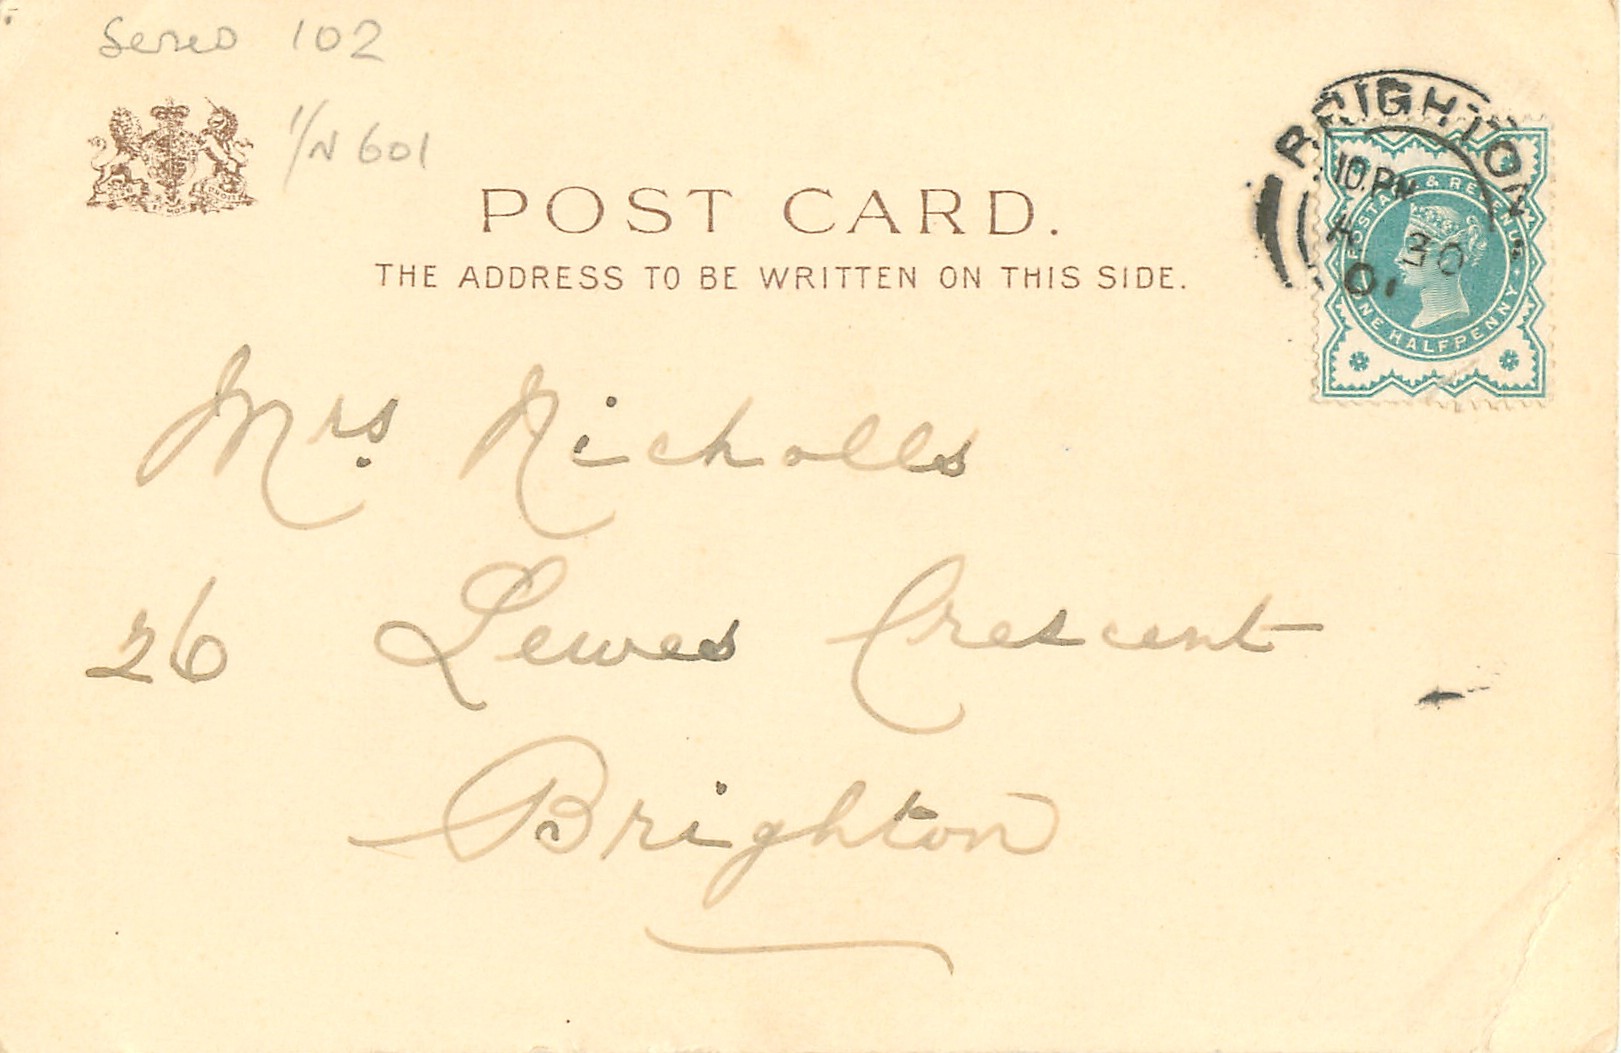 Series 102
1/N 601
POST CARD.
THE ADDRESS TO BE WRITTEN ON THIS SIDE.
BRIGHTON
10.PM
30
01
POSTAGE & REVENUE
ONE HALFPENNY
Mrs. Nicholls
26 Lewes Crescent
Brighton